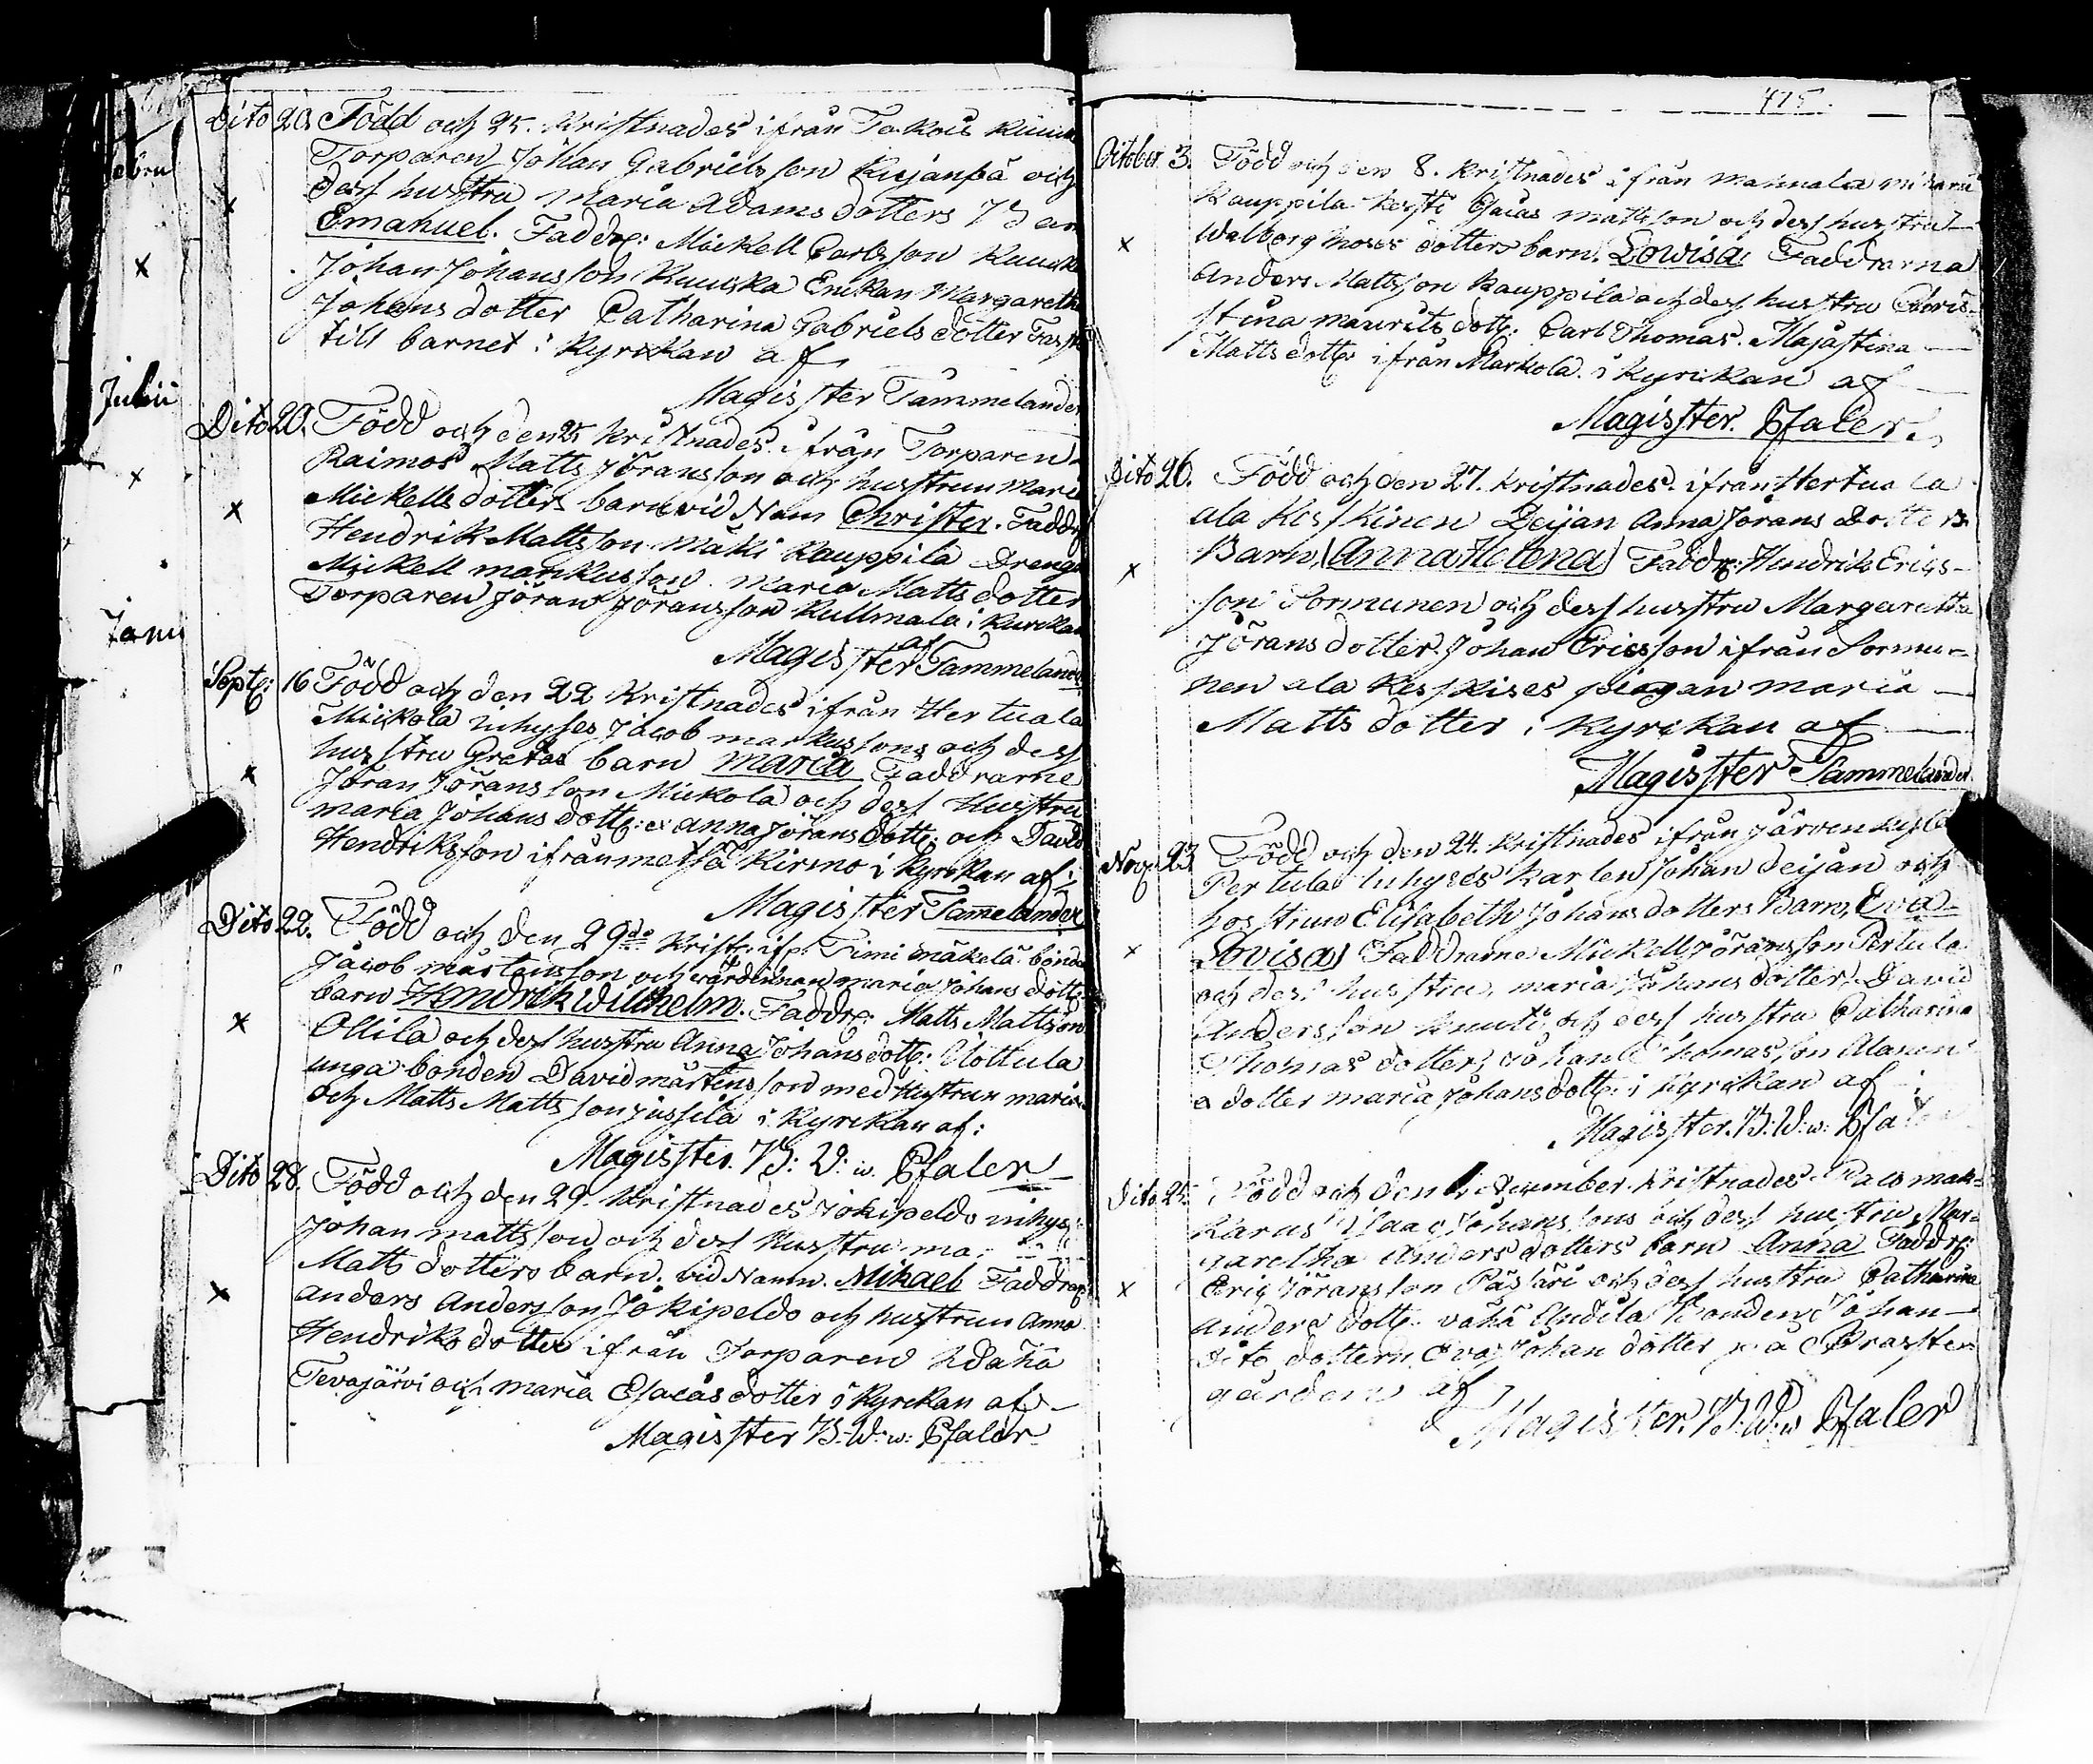 Dito 20. Född och 25. Kristnades ifrån
Torparen Johan Gabrielsson Kujanpä och
dess hustru Maria Adams dotters Bar
Emanuel. Faddr: Mickell Carlsson
Johan Johansson Kuuska Enckan Margaretha
Johans dotter Catharina Gabriels dotter
till barnet i Kyrckan af
Magister Tammelander
Julii
Dito 20. Född och den 25 Kristnades ifrån Torparen
Raimos Matts Jöransson och hustrun Maria
Mickells dotters barn vid Namn Christer. Faddr
Hendrik Mattsson Mäki Kauppila Dreng
Mickell Markusson Maria Matts dotter
Torparen Jöran Jöransson Kullmala i Kyrckan
af
Magister Tammelander
Sept: 16 Född och den 22 Kristnades ifrån Hertuala
Mickola inhyses Jacob Markussons och dess
hustru Gretas barn Maria Faddrarne
Jöran Jöransson Mickola och dess Hustru
Maria Johans dott: Anna Jörans dott: och David
Hendriksson ifrån Metsä Kirmo i Kyrckan af:
Magister Tamelander
Dito 22. Född och den 29de Krist: ifr: Timi Mäkelä bonde
Jacob Mårtensson och värdinnan Maria Johans dott:
barn Hendrik Willhelm. Faddr: Matts Mattsson
Ollila och dess hustru Anna Johans dott: Clottula
unga bonden David Mårtensson med Hustrun Maria
och Matts Mattsson Jussila i Kyrckan af:
Magister. B: W: w. Pfaler
Dito 28. Född och den 29. Kristnades Jokipeldo inhys
Johan Mattsson och dess Hustru
Matts dotters barn. vid Namn. Mikael Faddrar
Anders Andersson Jokipeldo och hustrun Anna
Hendriks dotter ifrån Torparen
Tevajärvi och Maria Esaias dotter i Kyrckan af
Magister B: W: w: Pfaler
415.
October 3. Född och den 8. Kristnades ifrån Mannala
Kauppila Esaias Mattsson och dess hustru
Walborg Moses dotters barn. Lowisa. Faddrarna
Anders Mattsson Kauppila och dess hustru Chris-
stina Maurits dott: Carl Thomas. Majastina
Matts dott: ifrån Markola. i Kyrckan af
Magister. Pfaler.
Dito 26. Född och den 27. Kristnades. ifrån Hertuala
ala Keskinen Peijan Anna Jörans Dotters
Barn, Anna Helena Faddr: Hendrik Erics-
son Sormunen och dess hustru Margaretha
Jörans dotter. Johan Ericsson ifrån Sormu-
nen ala Keskises pigan Maria
Matts dotter i Kyrckan af
Magister Tammelander
Nov: 23 Född och den 24. Kristnades ifrån Järvenkylä
Pertula inhyses Karlen Johan Peijan och
hostrun Elisabeth Johans dotters Barn, Eva
Lovisa Faddrarne Mickell Jöransson Pertula
och dess hustru, Maria Johans dotter, David
Andersson Knuuti och dess hustru Catharina
Thomas dotter, Johan Thomasson Alanen
a dotter Maria Johans dott: i Kyrckan af
Magister. B: W: w: Pfaler
Dito 25 Född och den 1 december. Kristnades
Karus Isaac Johanssons och dess hustru Mar-
garetha Anders dotters barn Anna Faddr:
Eric Jöransson och dess hustru Catharina
Anders dott: vähä Andila bonden Johan
dito dottern Eva Johan dotter på Praster-
gården af
Magister. B: W: w Pfaler